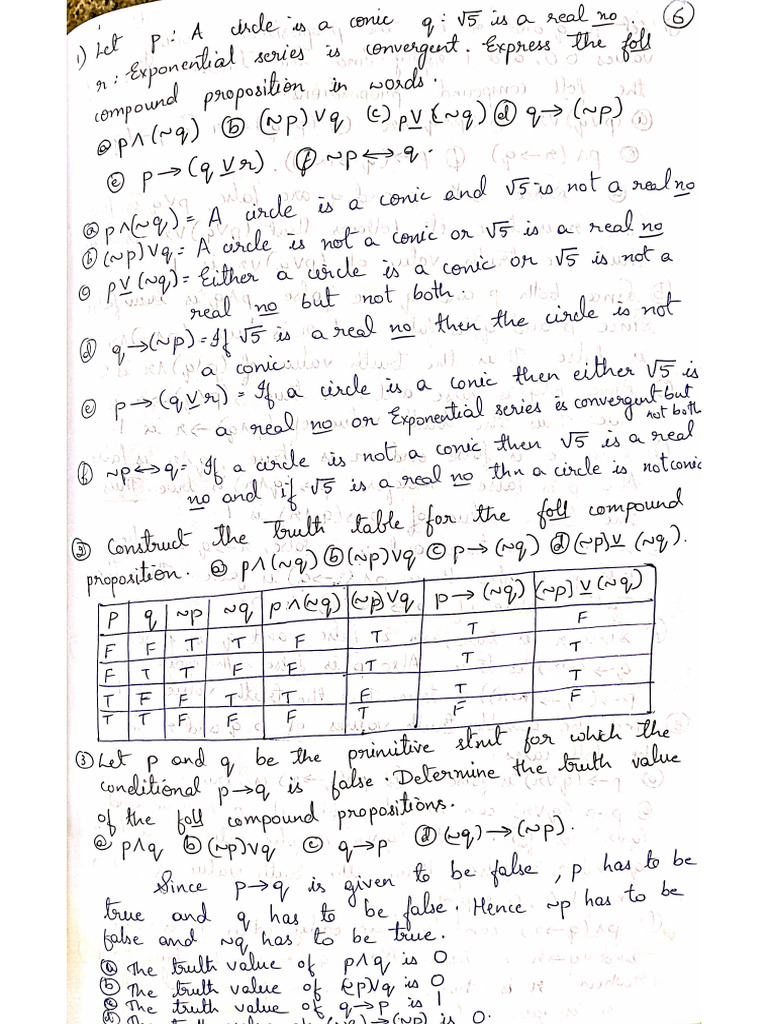 6
1) Let p: A circle is a conic q: √5 is a real no.
r: Exponential series is convergent. Express the foll
compound proposition in words.
ⓐ p∧(~q) ⓑ (~p)∨q (c) p⊻(~q) ⓓ q→(~p)
ⓔ p→(q⊻r) ⓕ ~p↔q.
ⓐ p∧(~q) = A circle is a conic and √5 is not a real no
ⓑ (~p)∨q = A circle is not a conic or √5 is a real no
ⓒ p⊻(~q) = Either a circle is a conic or √5 is not a
real no but not both.
ⓓ q→(~p) = If √5 is a real no then the circle is not
a conic.
ⓔ p→(q⊻r) = If a circle is a conic then either √5 is
a real no or Exponential series is convergent but
not both
ⓕ ~p↔q = If a circle is not a conic then √5 is a real
no and if √5 is a real no thn a circle is not conic
② Construct the truth table for the foll compound
proposition. ⓐ p∧(~q) ⓑ (~p)∨q ⓒ p→(~q) ⓓ (~p)⊻(~q).
P q ~p ~q p∧(~q) (~p)∨q p→(~q) (~p)⊻(~q)
F F T T F T T F
F T T F F T T T
T F F T T F T T
T T F F F T F F
③ Let p and q be the primitive stmt for which the
conditional p→q is false. Determine the truth value
of the foll compound propositions.
ⓐ p∧q ⓑ (~p)∨q ⓒ q→p ⓓ (~q)→(~p).
Since p→q is given to be false, p has to be
true and q has to be false. Hence ~p has to be
false and ~q has to be true.
ⓐ The truth value of p∧q is 0
ⓑ The truth value of (~p)∨q is 0
ⓒ The truth value of q→p is 1
ⓓ The truth value of (~q)→(~p) is 0.